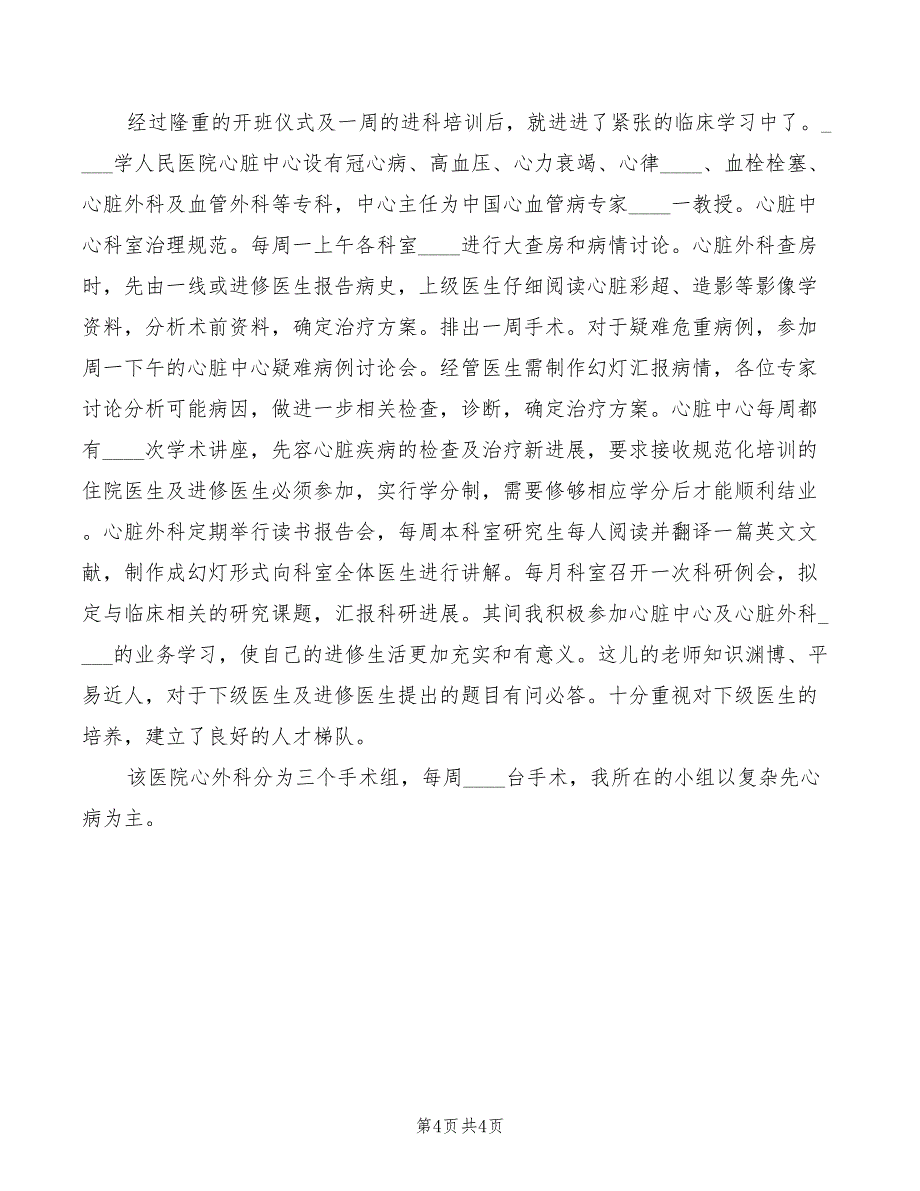 经过隆重的开班仪式及一周的进科培训后，就进进了紧张的临床学习中了。_
___学人民医院心脏中心设有冠心病、高血压、心力衰竭、心律____、血栓栓塞、
心脏外科及血管外科等专科，中心主任为中国心血管病专家____一教授。心脏中
心科室治理规范。每周一上午各科室____进行大查房和病情讨论。心脏外科查房
时，先由一线或进修医生报告病史，上级医生仔细阅读心脏彩超、造影等影像学
资料，分析术前资料，确定治疗方案。排出一周手术。对于疑难危重病例，参加
周一下午的心脏中心疑难病例讨论会。经管医生需制作幻灯汇报病情，各位专家
讨论分析可能病因，做进一步相关检查，诊断，确定治疗方案。心脏中心每周都
有____次学术讲座，先容心脏疾病的检查及治疗新进展，要求接收规范化培训的
住院医生及进修医生必须参加，实行学分制，需要修够相应学分后才能顺利结业
。心脏外科定期举行读书报告会，每周本科室研究生每人阅读并翻译一篇英文文
献，制作成幻灯形式向科室全体医生进行讲解。每月科室召开一次科研例会，拟
定与临床相关的研究课题，汇报科研进展。其间我积极参加心脏中心及心脏外科_
___的业务学习，使自己的进修生活更加充实和有意义。这儿的老师知识渊博、平
易近人，对于下级医生及进修医生提出的题目有问必答。十分重视对下级医生的
培养，建立了良好的人才梯队。
该医院心外科分为三个手术组，每周____台手术，我所在的小组以复杂先心
病为主。
第4页 共4页